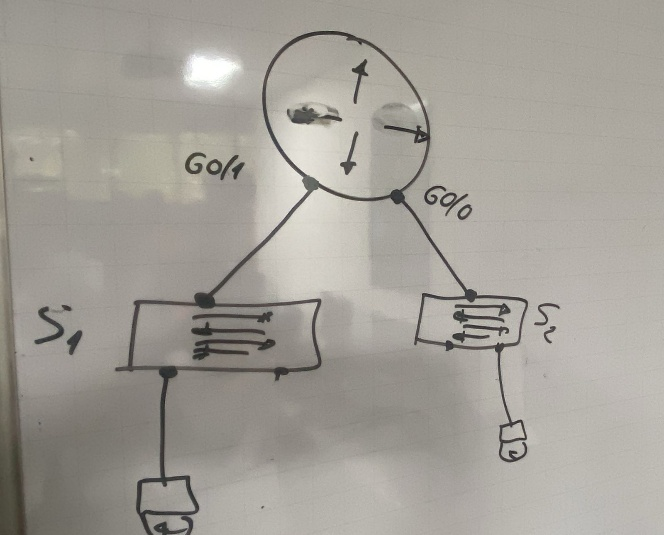 G0/1
G0/0
S1
S2